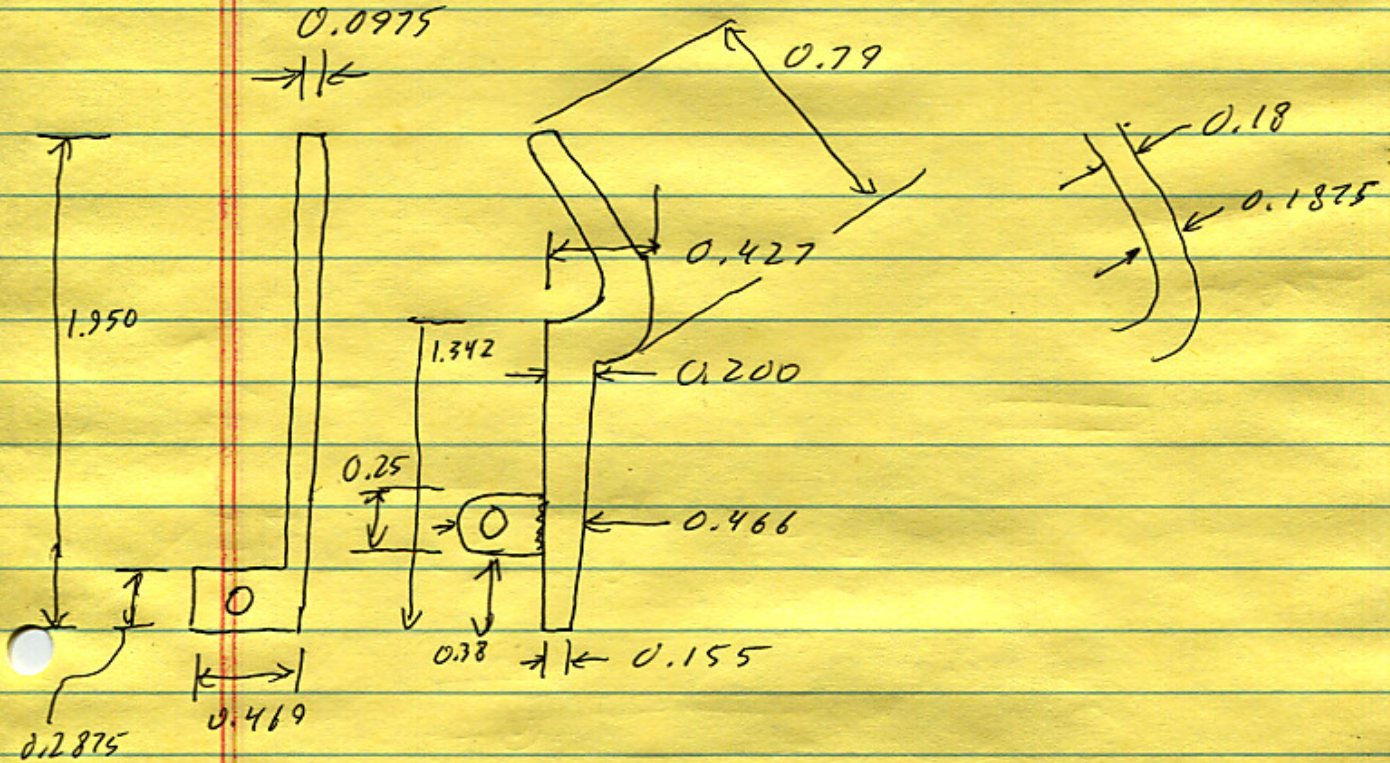 0.0975
0.79
0.18
0.1875
0.427
1.950
1.342
0.200
0.25
0.466
0.38
0.155
0.469
0.2875